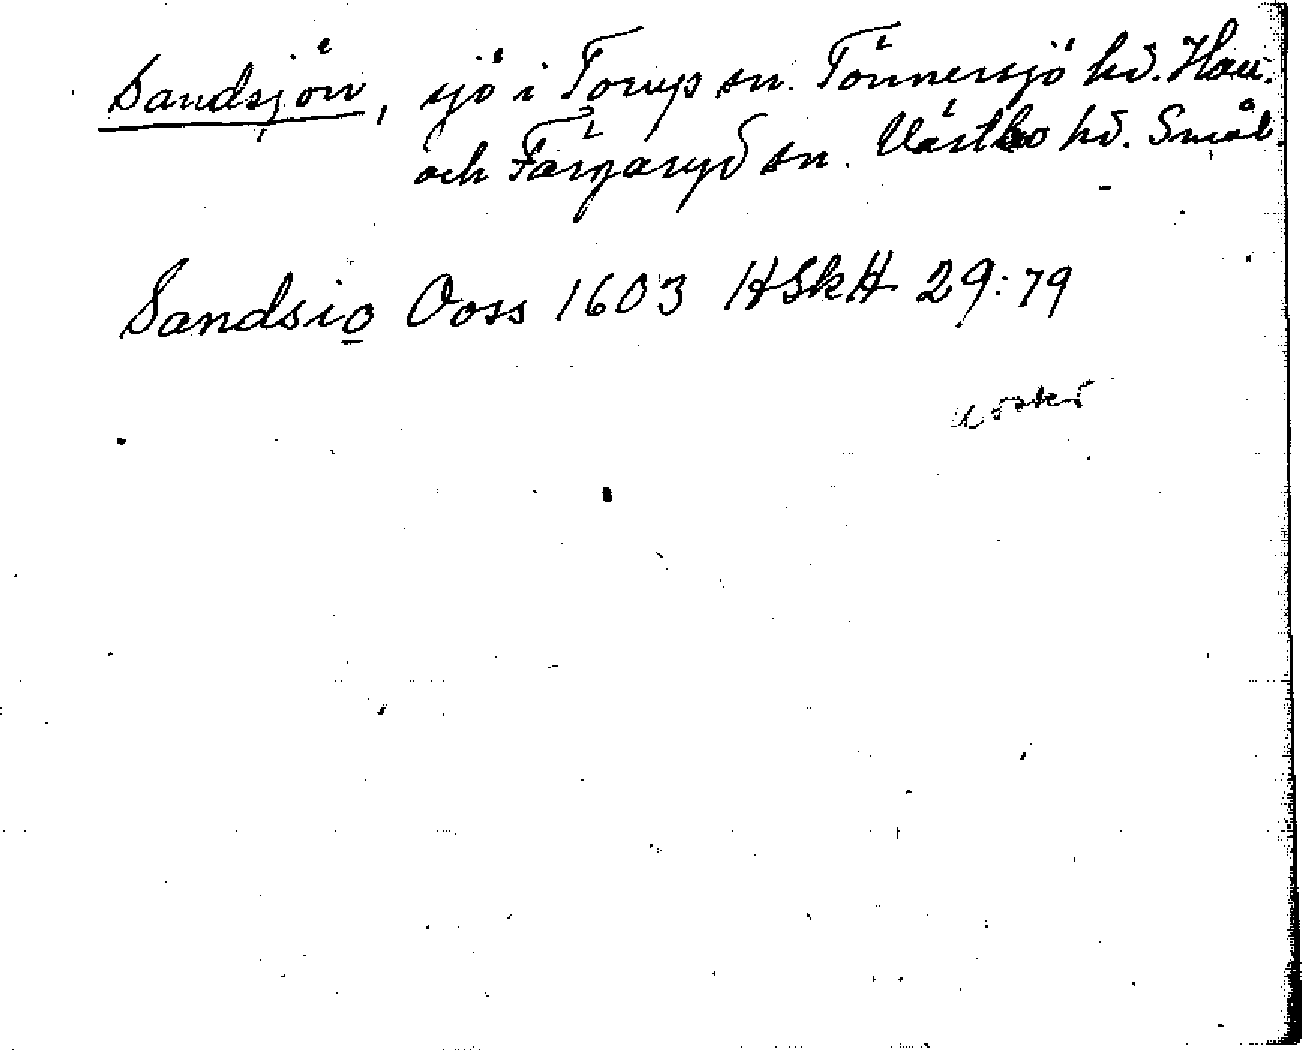 Sandsjön, sjö i Torup sn. Tönnersjö hd. Hall.
och Färgaryd sn. Västbo hd. Smål.
Sandsio Ooss 1603 HSkH 29:79